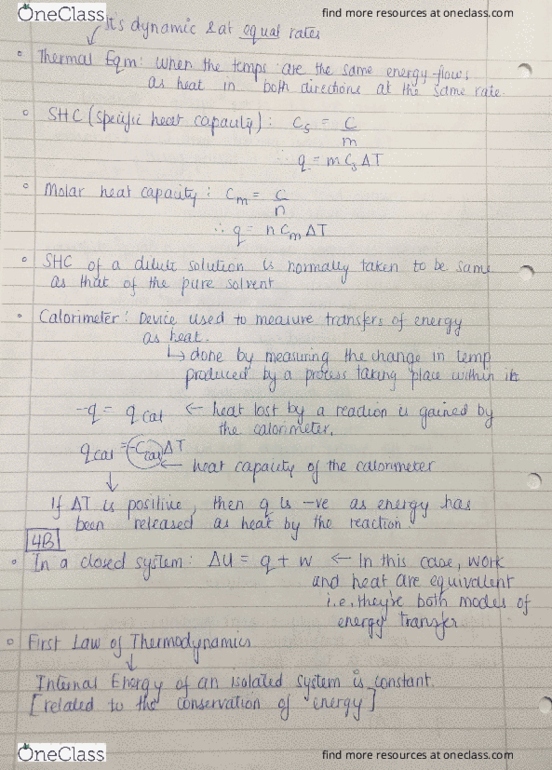 OneClass
find more resources at oneclass.com
It's dynamic & at equal rates
Thermal Eqm: when the temps are the same energy flows
as heat in both directions at the same rate.
SHC (specific heat capacity): Cs = C/m
∴ q = m Cs ΔT
Molar heat capacity: Cm = C/n
∴ q = n Cm ΔT
SHC of a dilute solution is normally taken to be same
as that of the pure solvent
Calorimeter: Device used to measure transfers of energy
as heat.
↳ done by measuring the change in temp
produced by a process taking place within it
-q = q cal ← heat lost by a reaction is gained by
the calorimeter.
q cal = -Ccal ΔT
← heat capacity of the calorimeter
↓
If ΔT is positive, then q is -ve as energy has
been released as heat by the reaction.
4B
In a closed system: ΔU = q + w ← In this case, work
and heat are equivalent
i.e. they're both modes of
energy transfer
First Law of Thermodynamics
↓
Internal Energy of an isolated system is constant.
[related to the conservation of energy]
OneClass
find more resources at oneclass.com